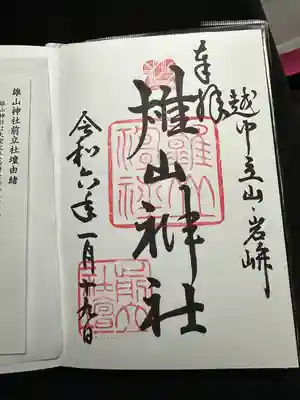 奉拝
越中立山岩峅
雄山神社
令和六年一月十九日
雄山神社前立社壇由緒